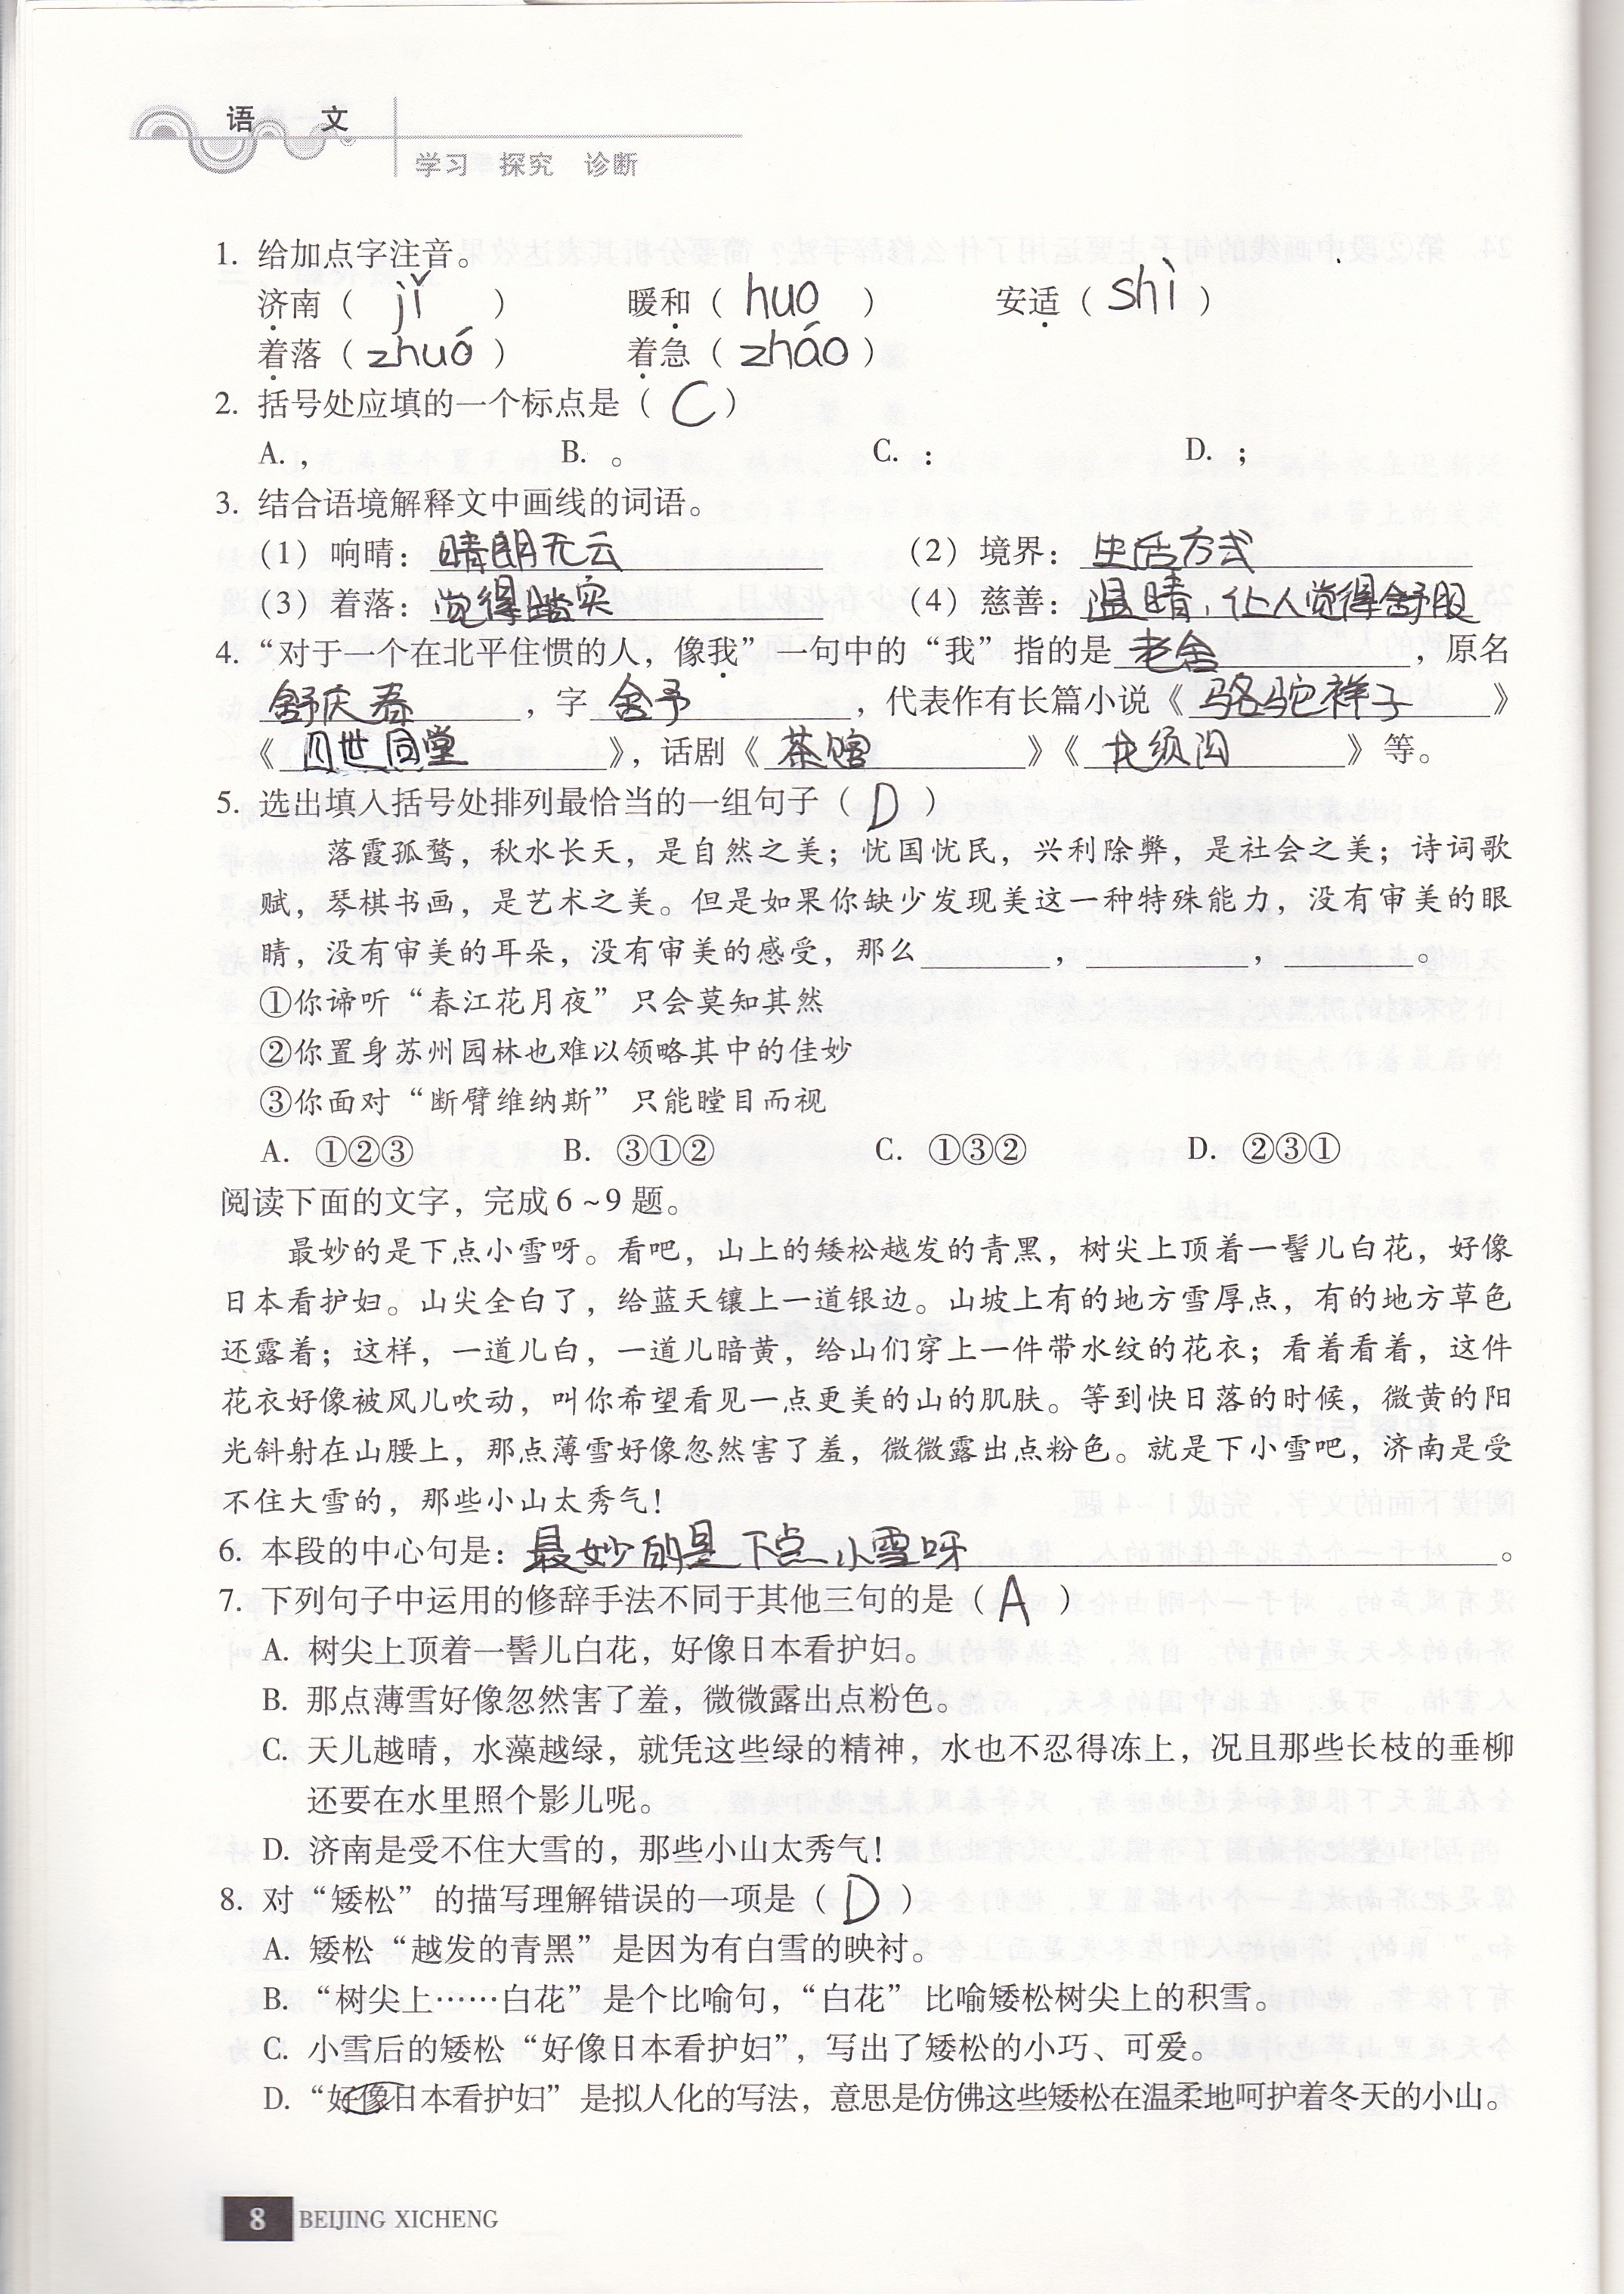 语 文
学习 探究 诊断
1. 给加点字注音。
济南（ jǐ ） 暖和（ huo ） 安适（ shì ）
着落（ zhuó ） 着急（ zháo ）
2. 括号处应填的一个标点是（ C ）
A. ， B. 。 C. ： D. ；
3. 结合语境解释文中画线的词语。
（1）响晴：晴朗无云 （2）境界：生活方式
（3）着落：觉得踏实 （4）慈善：温晴，让人觉得舒服
4. “对于一个在北平住惯的人，像我”一句中的“我”指的是老舍，原名
舒庆春，字舍予，代表作有长篇小说《骆驼祥子》
《四世同堂》，话剧《茶馆》《龙须沟》等。
5. 选出填入括号处排列最恰当的一组句子（ D ）
落霞孤鹜，秋水长天，是自然之美；忧国忧民，兴利除弊，是社会之美；诗词歌
赋，琴棋书画，是艺术之美。但是如果你缺少发现美这一种特殊能力，没有审美的眼
睛，没有审美的耳朵，没有审美的感受，那么________，________，________。
①你谛听“春江花月夜”只会莫知其然
②你置身苏州园林也难以领略其中的佳妙
③你面对“断臂维纳斯”只能瞠目而视
A. ①②③ B. ③①② C. ①③② D. ②③①
阅读下面的文字，完成6~9题。
最妙的是下点小雪呀。看吧，山上的矮松越发的青黑，树尖上顶着一髻儿白花，好像
日本看护妇。山尖全白了，给蓝天镶上一道银边。山坡上有的地方雪厚点，有的地方草色
还露着；这样，一道儿白，一道儿暗黄，给山们穿上一件带水纹的花衣；看着看着，这件
花衣好像被风儿吹动，叫你希望看见一点更美的山的肌肤。等到快日落的时候，微黄的阳
光斜射在山腰上，那点薄雪好像忽然害了羞，微微露出点粉色。就是下小雪吧，济南是受
不住大雪的，那些小山太秀气！
6. 本段的中心句是：最妙的是下点小雪呀。
7. 下列句子中运用的修辞手法不同于其他三句的是（ A ）
A. 树尖上顶着一髻儿白花，好像日本看护妇。
B. 那点薄雪好像忽然害了羞，微微露出点粉色。
C. 天儿越晴，水藻越绿，就凭这些绿的精神，水也不忍得冻上，况且那些长枝的垂柳
还要在水里照个影儿呢。
D. 济南是受不住大雪的，那些小山太秀气！
8. 对“矮松”的描写理解错误的一项是（ D ）
A. 矮松“越发的青黑”是因为有白雪的映衬。
B. “树尖上……白花”是个比喻句，“白花”比喻矮松树尖上的积雪。
C. 小雪后的矮松“好像日本看护妇”，写出了矮松的小巧、可爱。
D. “好像日本看护妇”是拟人化的写法，意思是仿佛这些矮松在温柔地呵护着冬天的小山。
8 BEIJING XICHENG